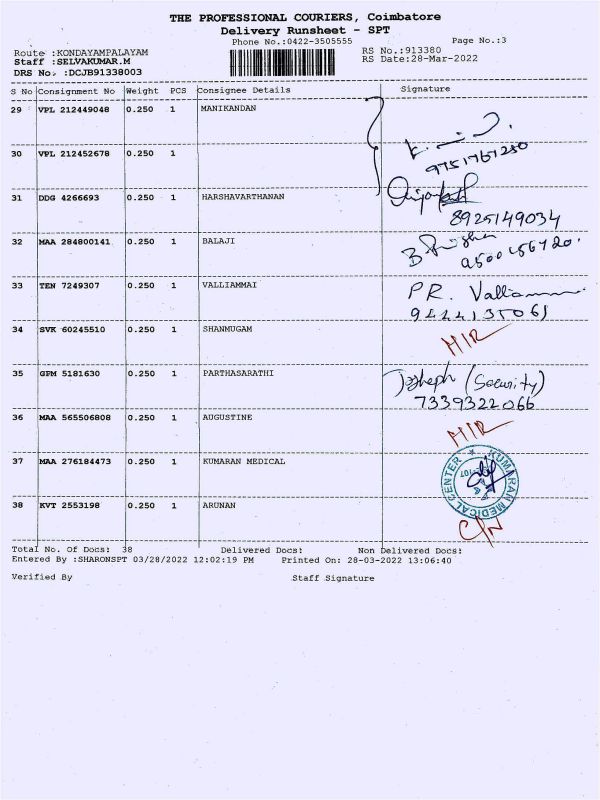 THE PROFESSIONAL COURIERS, Coimbatore
Delivery Runsheet - SPT
Phone No.:0422-3505555
Page No.:3
Route :KONDAYAMPALAYAM
RS No.:913380
Staff :SELVAKUMAR.M
RS Date:28-Mar-2022
DRS No. :DCJB91338003
S No Consignment No Weight PCS Consignee Details Signature
29 VPL 212449048 0.250 1 MANIKANDAN
30 VPL 212452678 0.250 1
9751767250
31 DDG 4266693 0.250 1 HARSHAVARTHANAN
8925149034
32 MAA 284800141 0.250 1 BALAJI
33 TEN 7249307 0.250 1 VALLIAMMAI P.R. Valliamm
34 SVK 60245510 0.250 1 SHANMUGAM
35 GPM 5181630 0.250 1 PARTHASARATHI (Security)
7339322066
36 MAA 565506808 0.250 1 AUGUSTINE
37 MAA 276184473 0.250 1 KUMARAN MEDICAL
KUMARAN MEDICAL CENTER
38 KVT 2553198 0.250 1 ARUNAN
C/N
Total No. Of Docs: 38 Delivered Docs: Non Delivered Docs:
Entered By :SHARONSPT 03/28/2022 12:02:19 PM Printed On: 28-03-2022 13:06:40
Verified By Staff Signature